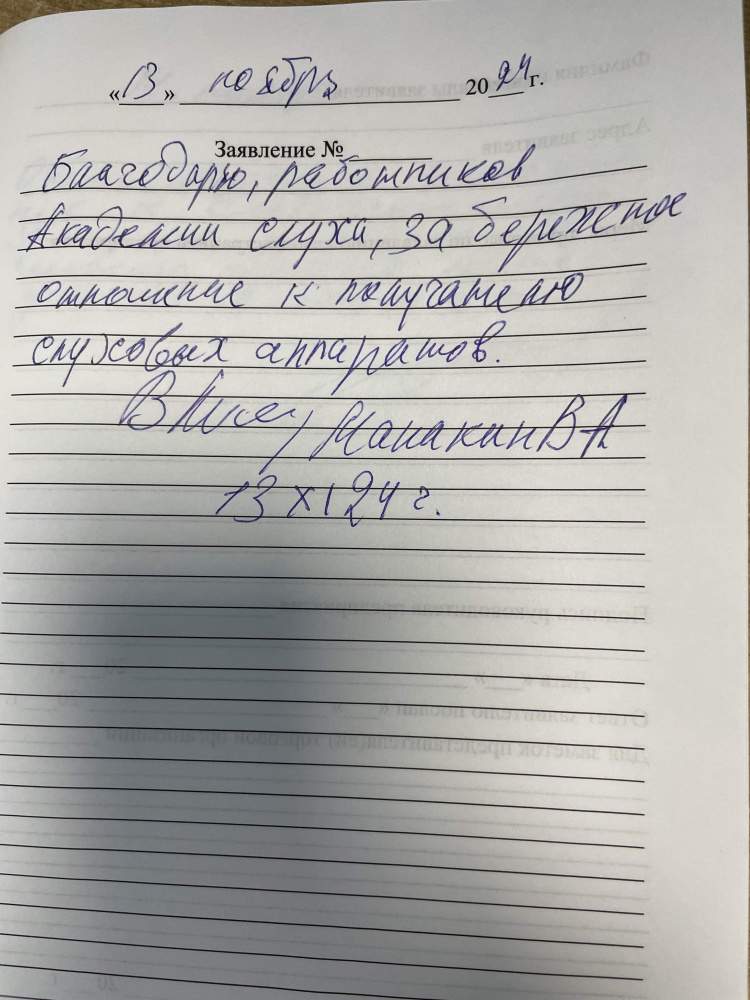 «13» ноября 2024 г.
Заявление №
Благодарю, работников
Академии слуха, за бережное
отношение к получателю
слуховых аппаратов.
Манакин В А
13 XI 24 г.